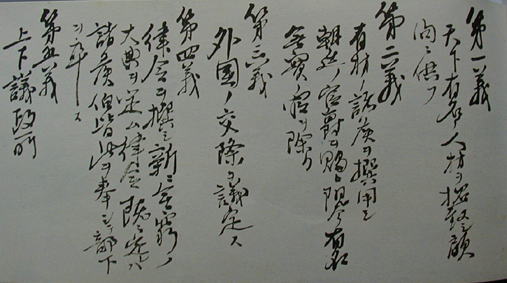 第一義
天下有名ノ人材ヲ招致シ顧
問ニ供フ
第二義
有材ノ諸侯ヲ撰用シ
朝廷ノ官爵ヲ賜ヒ現今有名
無実ノ官ヲ除ク
第三義
外国ノ交際ヲ議定ス
第四義
律令ヲ撰シ新ニ無窮ノ
大典ヲ定ム律令既ニ定レハ
諸侯伯皆此ヲ奉シテ部下
ヲ率ス
第五義
上下議政所